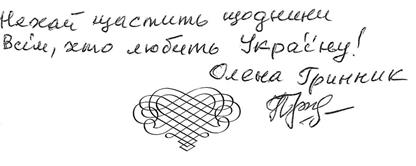 Нехай щастить щоднини
Всім, хто любить Україну!
Олена Гринник